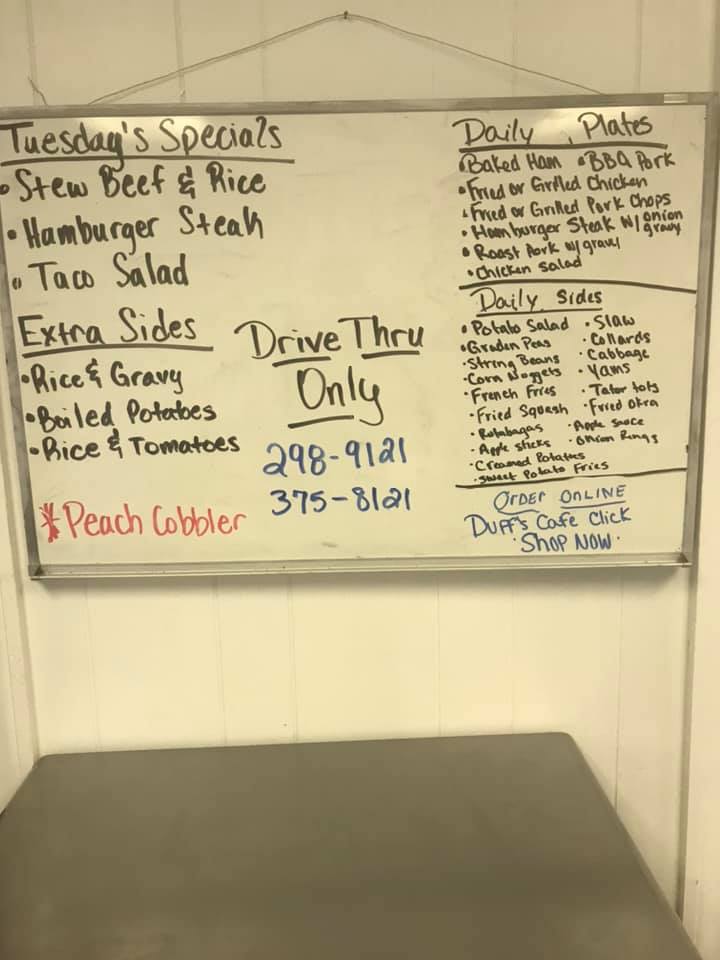 Tuesday's Specials
• Stew Beef & Rice
• Hamburger Steak
• Taco Salad
Extra Sides
• Rice & Gravy
• Boiled Potatoes
• Rice & Tomatoes
* Peach Cobbler
Drive Thru
Only
298-9121
375-8121
Daily Plates
• Baked Ham • BBQ Pork
• Fried or Grilled Chicken
• Fried or Grilled Pork Chops
• Hamburger Steak W/ onion gravy
• Roast Pork w/ gravy
• Chicken Salad
Daily Sides
• Potato Salad • Slaw
• Graden Peas • Collards
• String Beans • Cabbage
• Corn Nuggets • Yams
• French Fries • Tater tots
• Fried Squash • Fried Okra
• Rutabagas • Apple Sauce
• Apple sticks • Onion Rings
• Creamed Potatoes
• Sweet Potato Fries
ORDER ONLINE
DUFF's Cafe Click
• SHOP NOW •